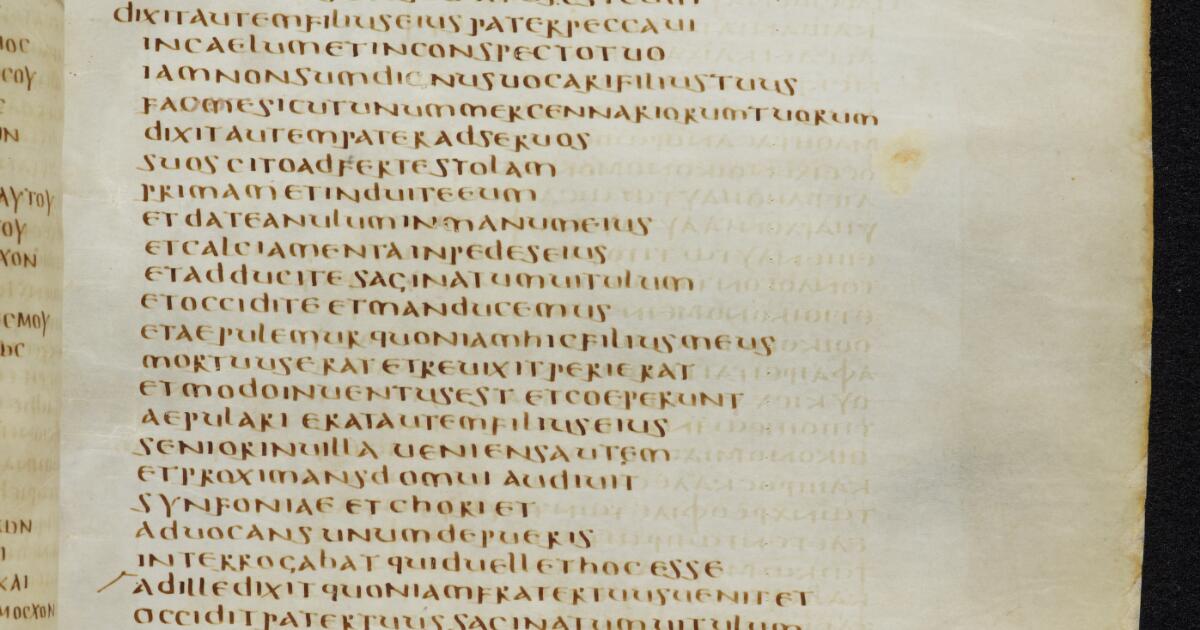 dIXITAUTEMFILIUSEIUS PATERPECCAUI
INCAELUMETINCONSPECTOTUO
IAMNONSUMDIGNUSUOCARIFILIUSTUUS
FACMESICUTUNUMMERCENNARIORUMTUORUM
dIXITAUTEMPATERADSERUOS
SUOS CITOADFERTESTOLAM
PRIMAM ETINDUITEEUM
ETDATEANULUMINMANUMEIUS
ETCALCIAMENTAINPEDESEIUS
ETADDUCITE SAGINATUMUITULUM
ETOCCIDITE ETMANDUCEMUS
ETAEPULEMUR QUONIAMHICFILIUSMEUS
MORTUUSERAT ETREUIXITPERIERAT
ETMODOINUENTUSEST ETCOEPERUNT
AEPULARI ERATAUTEMFILIUSEIUS
SENIORINUILLA UENIENSAUTEM
ETPROXIMANSDOMUI AUDIUIT
SYNFONIAE ETCHORI ET
ADUOCANSUNUMDEPUERIS
INTERROGABAT QUIDUELLETHOC ESSE
ADILLEDIXITQUONIAMFRATERTUUSUENIT ET
OCCIDITPATERTUUS SAGINATUMUITULUM
ΑΥΤΟΥ
ΜΟΣΧΟΝ